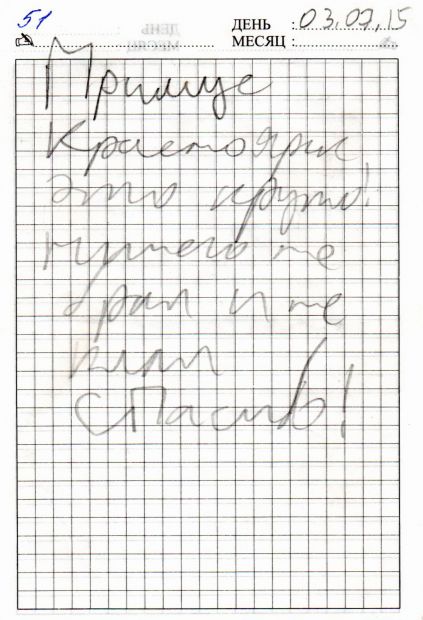 51
ДЕНЬ : 03.07.15
МЕСЯЦ :
Красноярск
Это круто!
ничего не
брал и не
клал
Спасиб!